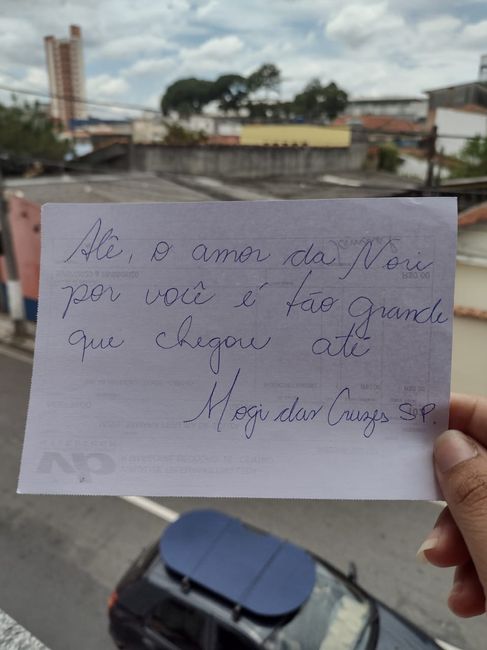 Alê, o amor da Nori
por você é tão grande
que chegou até
Mogi das Cruzes SP.